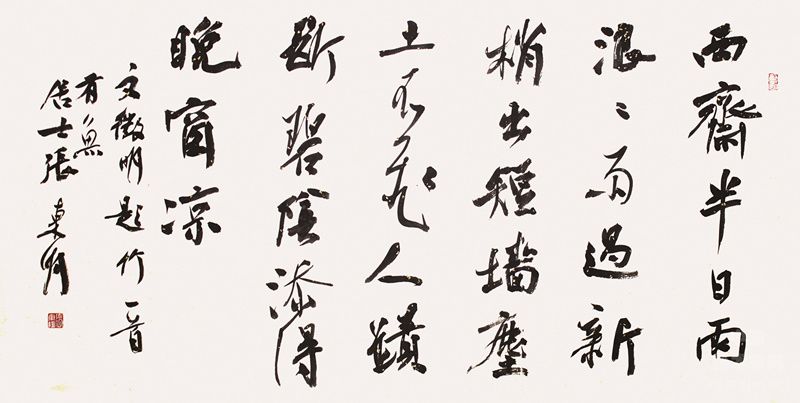 西齋半日雨
浪〻雨過新
梢出短墻塵
土不飛人蹟
斷碧陰添得
晚窗涼
文徵明題竹一首
有魚
居士張東